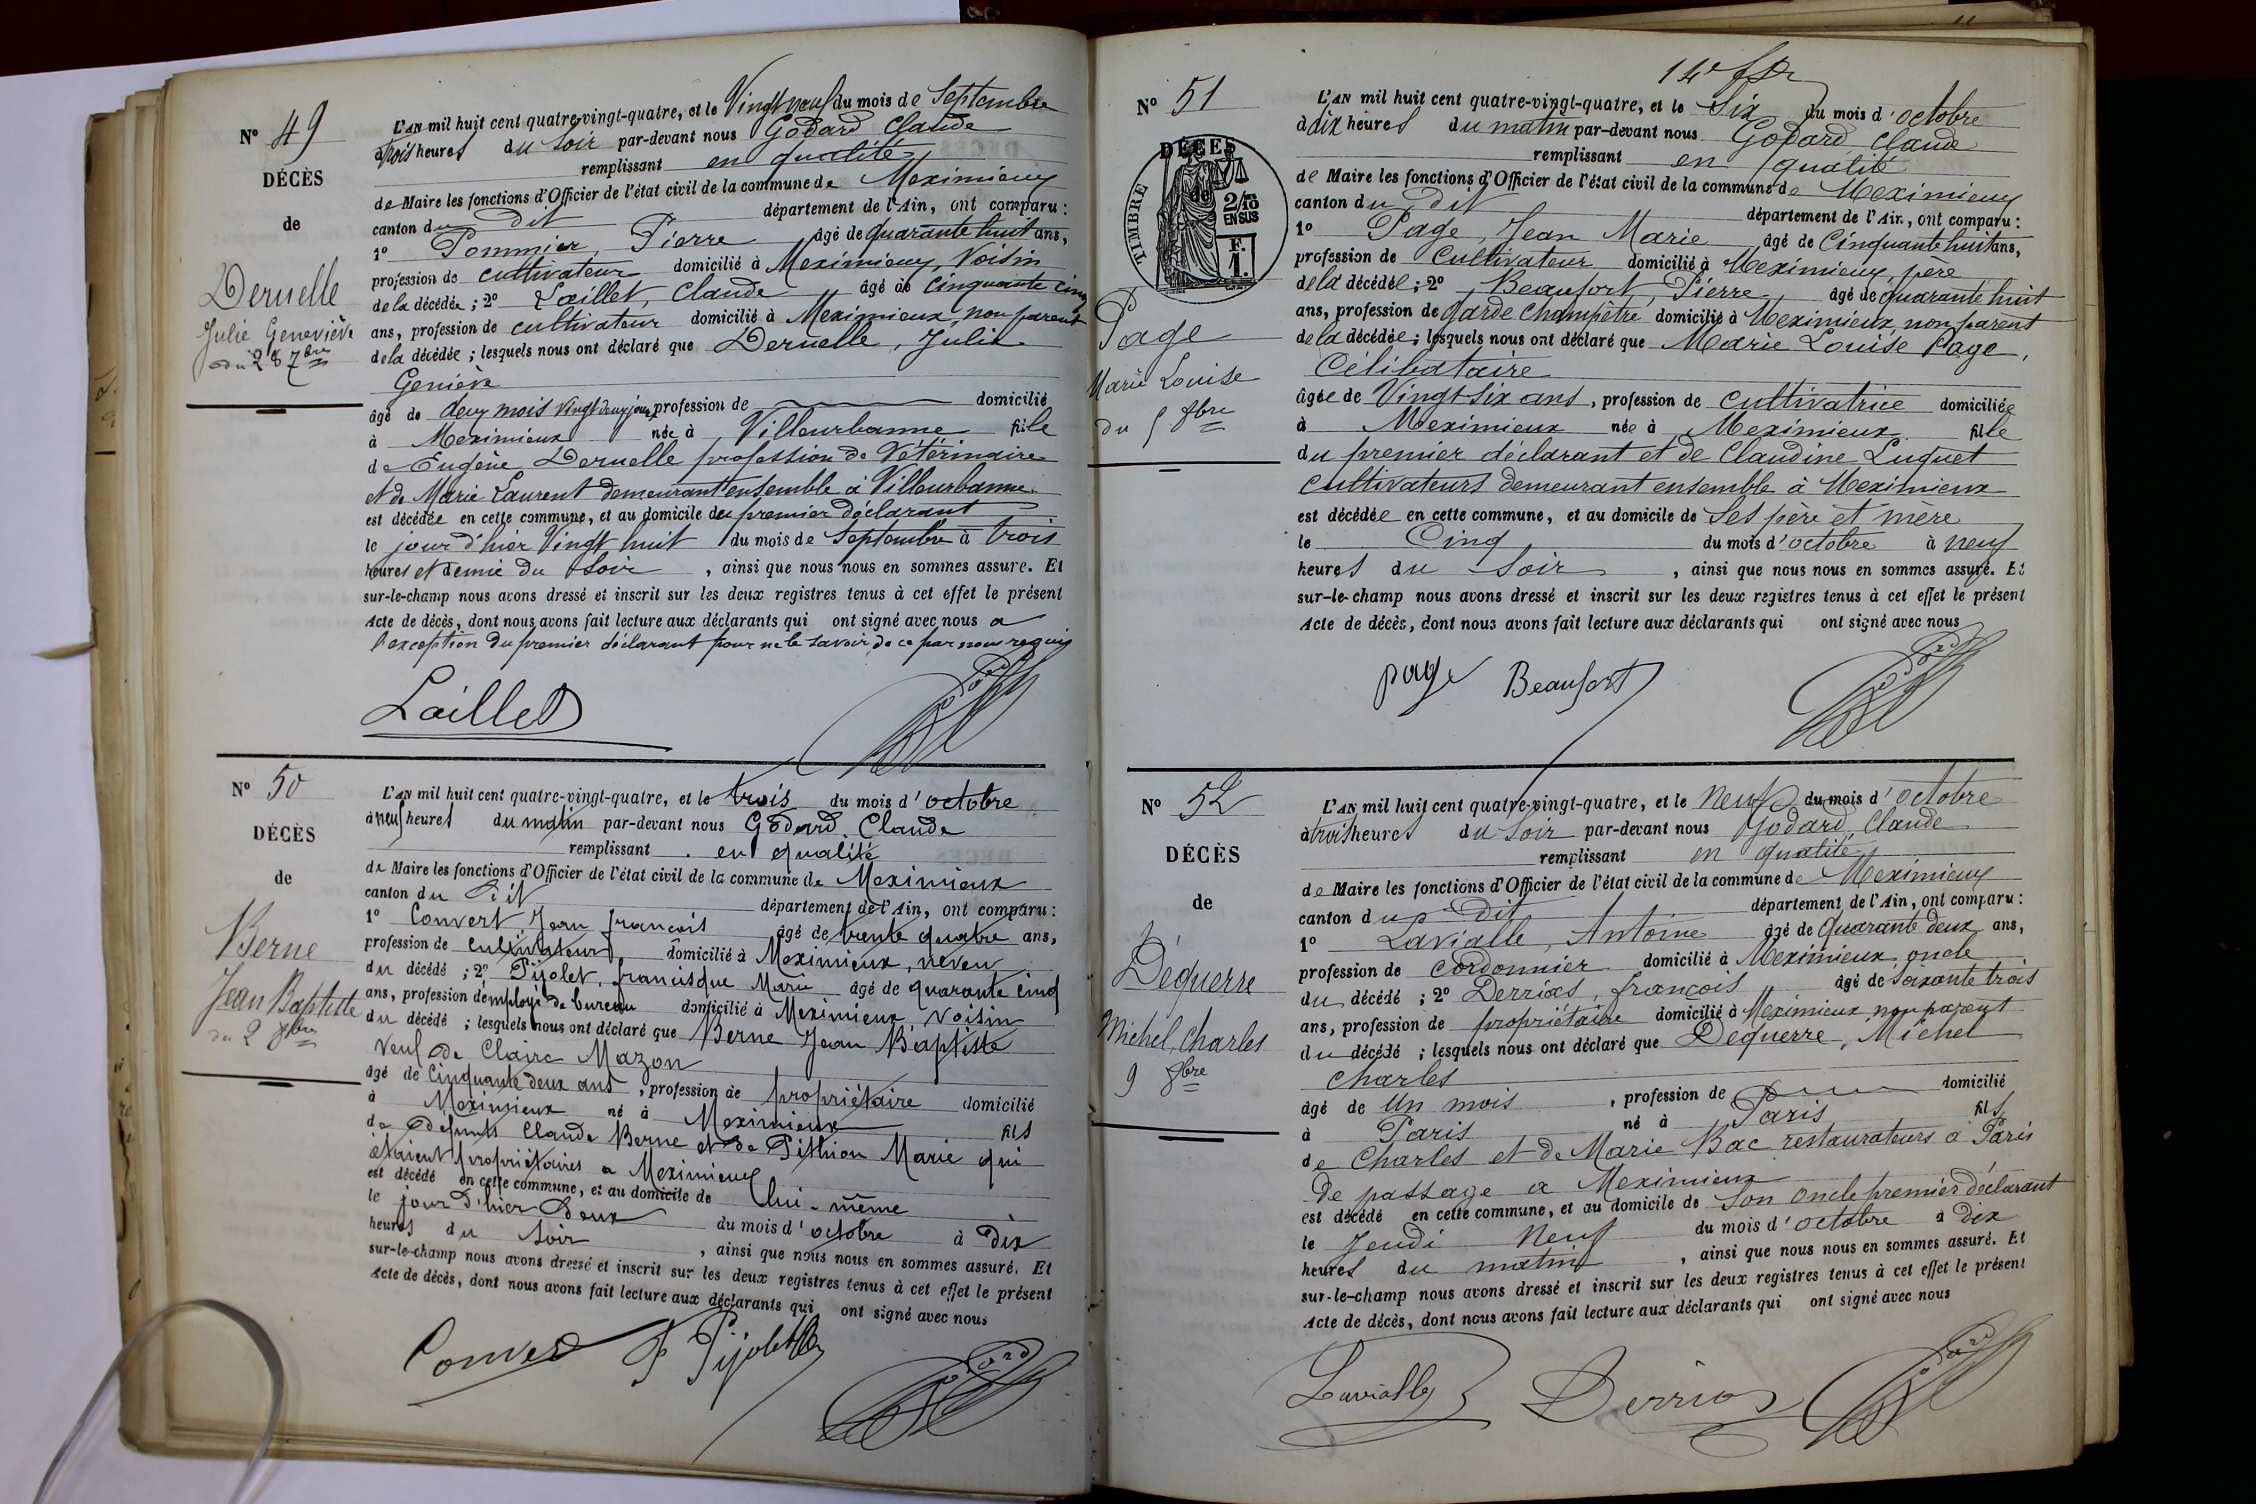 Nº 49
DÉCÈS
de
Deruelle
Julie Geneviève
du 28 7bre
L'AN mil huit cent quatre-vingt-quatre, et le Vingt neuf du mois de Septembre
à trois heures du Soir par-devant nous Godard Claude
remplissant en qualité
de Maire les fonctions d'Officier de l'état civil de la commune de Meximieux
canton du dit département de l'Ain, ont comparu :
1º Pommier, Pierre âgé de quarante huit ans,
profession de cultivateur domicilié à Meximieux, Voisin
de la décédée ; 2º Loeillet, Claude âgé de Cinquante cinq
ans, profession de cultivateur domicilié à Meximieux, non parent
de la décédée ; lesquels nous ont déclaré que Deruelle, Julie
Geniève
âgé de deux mois vingt deux jours profession de domicilié
à Meximieux née à Villeurbanne fille
de Eugène Deruelle profession de Vétérinaire
et de Marie Laurent demeurant ensemble à Villeurbanne
est décédée en cette commune, et au domicile du premier déclarant
le jour d'hier Vingt huit du mois de Septembre à trois
heures et demie du Soir , ainsi que nous nous en sommes assuré. Et
sur-le-champ nous avons dressé et inscrit sur les deux registres tenus à cet effet le présent
Acte de décès, dont nous avons fait lecture aux déclarants qui ont signé avec nous a
l'exception du premier déclarant pour ne le savoir de ce par nous requis
Loillet
Godard
Nº 50
DÉCÈS
de
Berne
Jean Baptiste
du 2 8bre
L'AN mil huit cent quatre-vingt-quatre, et le trois du mois d'octobre
à neuf heures du matin par-devant nous Godard, Claude
remplissant en qualité
de Maire les fonctions d'Officier de l'état civil de la commune de Meximieux
canton du Dit département de l'Ain, ont comparu :
1º Convert, Jean françois âgé de trente quatre ans,
profession de cultivateur domicilié à Meximieux, neveu
du décédé ; 2º Pijolet, francisque Marie âgé de quarante cinq
ans, profession d'employé de bureau domicilié à Meximieux, voisin
du décédé ; lesquels nous ont déclaré que Berne Jean Baptiste
Veuf de Claire Mazon
âgé de Cinquante deux ans , profession de propriétaire domicilié
à Meximieux né à Meximieux fils
de Defunts Claude Berne et de Pithion Marie qui
étaient propriétaires a Meximieux
est décédé en cette commune, et au domicile de lui-même
le jour D'hier Deux du mois d'octobre à Dix
heures du Soir , ainsi que nous nous en sommes assuré. Et
sur-le-champ nous avons dressé et inscrit sur les deux registres tenus à cet effet le présent
Acte de décès, dont nous avons fait lecture aux déclarants qui ont signé avec nous
Convert F Pijolet
Godard
Nº 51
TIMBRE
DÉCÈS
de
2/10
EN SUS
F.
1.
Page
Marie Louise
du 5 8bre
L'AN mil huit cent quatre-vingt-quatre, et le Six du mois d'octobre
à dix heures du matin par-devant nous Godard, Claude
remplissant en qualité
de Maire les fonctions d'Officier de l'état civil de la commune de Meximieux
canton du dit département de l'Ain, ont comparu :
1º Page, Jean Marie âgé de Cinquante huit ans,
profession de Cultivateur domicilié à Meximieux, père
de la décédée ; 2º Beaufort, Pierre, âgé de quarante huit
ans, profession de garde champêtre domicilié à Meximieux, non parent
de la décédée ; lesquels nous ont déclaré que Marie Louise Page,
Célibataire
âgée de Vingt Six ans , profession de cultivatrice domiciliée
à Meximieux née à Meximieux fille
du premier déclarant et de Claudine Luquet
cultivateurs demeurant ensemble à Meximieux
est décédée en cette commune, et au domicile de Ses père et mère
le Cinq du mois d'octobre à neuf
heures du Soir , ainsi que nous nous en sommes assuré. Et
sur-le-champ nous avons dressé et inscrit sur les deux registres tenus à cet effet le présent
Acte de décès, dont nous avons fait lecture aux déclarants qui ont signé avec nous
page Beaufort
Godard
Nº 52
DÉCÈS
de
Déquerre
Michel, Charles
9 8bre
L'AN mil huit cent quatre-vingt-quatre, et le Neuf du mois d'octobre
à trois heures du Soir par-devant nous Godard Claude
remplissant en qualité
de Maire les fonctions d'Officier de l'état civil de la commune de Meximieux
canton du Dit département de l'Ain, ont comparu :
1º Lavialle, Antoine âgé de quarante deux ans,
profession de Cordonnier domicilié à Meximieux oncle
du décédé ; 2º Derrias, françois âgé de Soixante trois
ans, profession de propriétaire domicilié à Meximieux non parent
du décédé ; lesquels nous ont déclaré que Dequerre, Michel
Charles
âgé de Un mois , profession de domicilié
à Paris né à Paris fils
de Charles et de Marie Bac restaurateurs à Paris
De passage a Meximieux
est décédé en cette commune, et au domicile de Son oncle premier déclarant
le Jeudi Neuf du mois d'octobre à dix
heures du matin , ainsi que nous nous en sommes assuré. Et
sur-le-champ nous avons dressé et inscrit sur les deux registres tenus à cet effet le présent
Acte de décès, dont nous avons fait lecture aux déclarants qui ont signé avec nous
Lavialle Derrias
Godard